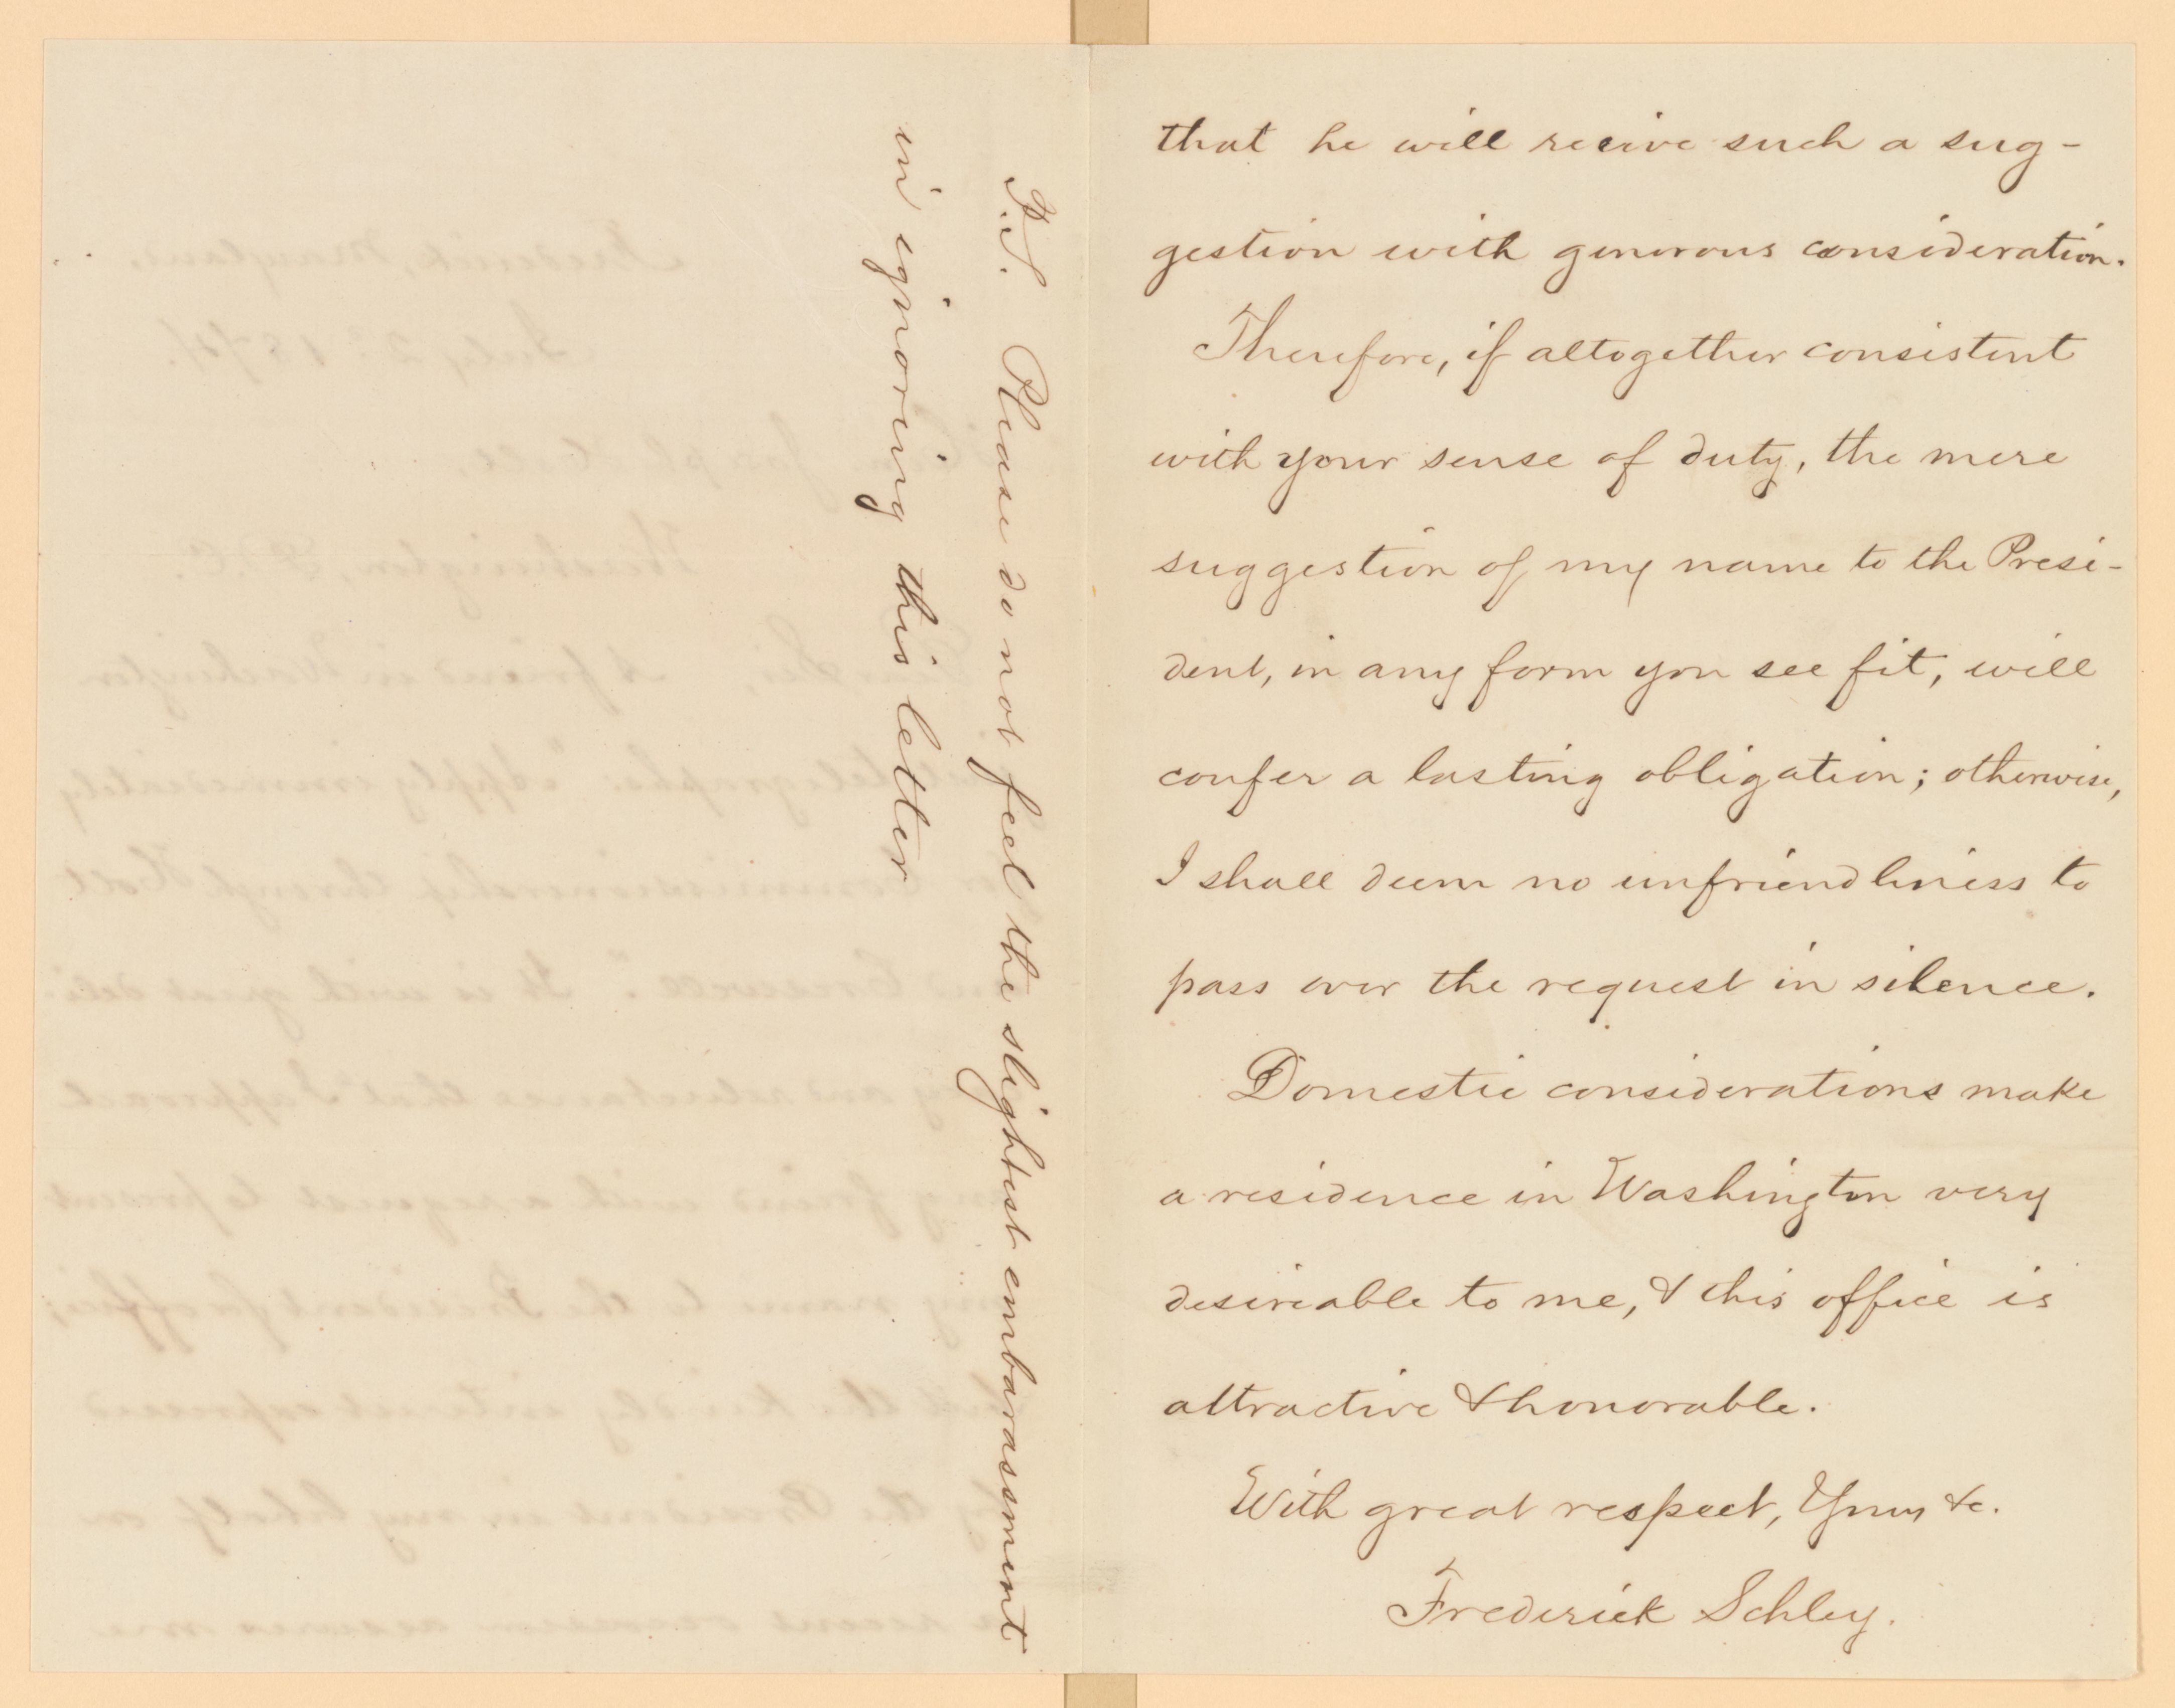 that he will receive such a sug-
gestion with generous consideration.
Therefore, if altogether consistent
with your sense of duty, the mere
suggestion of my name to the Presi-
dent, in any form you see fit, will
confer a lasting obligation; otherwise,
I shall deem no unfriendliness to
pass over the request in silence.
Domestic considerations make
a residence in Washington very
desireable to me, & this office is
attractive & honorable.
With great respect, Yours &c.
Frederick Schley.
P.S. Please do not feel the slightest embarassment
in ignoring this letter